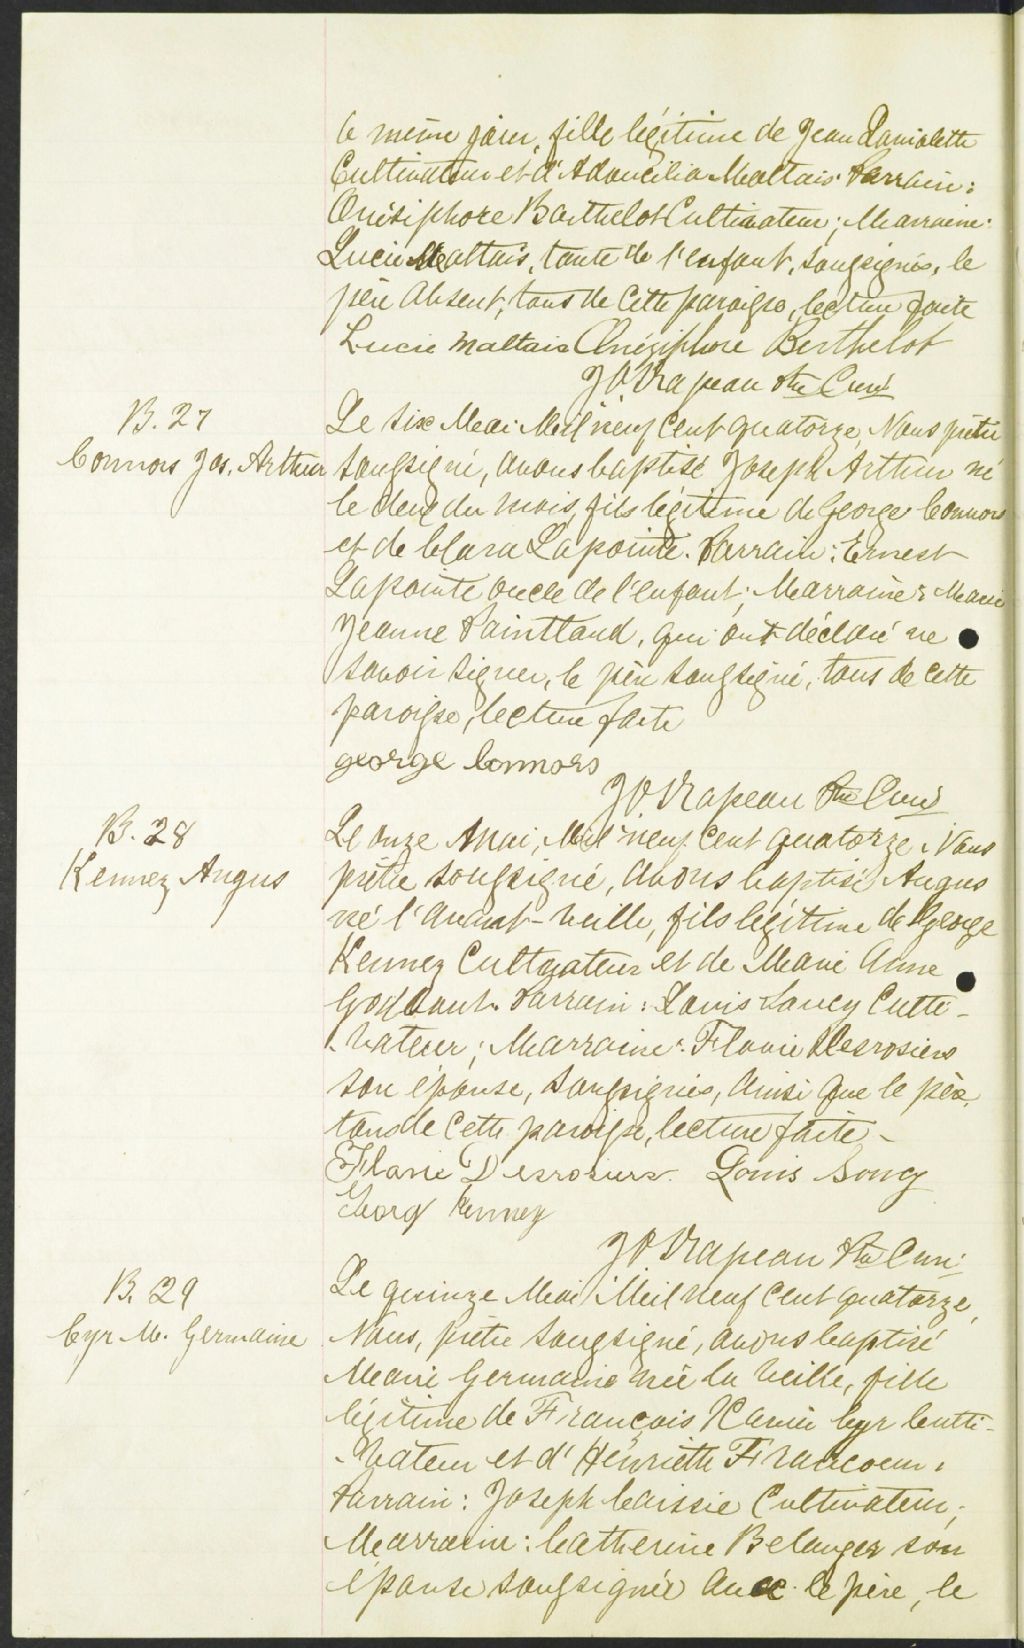 le même jour, fille légitime de Jean
Cultivateur et d' Maltais. Parrain:
Onisiphore Barthelot Cultivateur; Marraine:
Lucie Maltais, tante de l'enfant, soussignés, le
père absent, tous de cette paroisse, lecture faite
Lucie Maltais Onésiphore Berthelot
J O Drapeau Ptre Curé
B. 27
Connors Jos. Arthur
Le six Mai Mil neuf cent quatorze, Nous prêtre
soussigné, avons baptisé Joseph Arthur né
le deux du mois, fils légitime de George Connors
et de Clara Lapointe. Parrain: Ernest
Lapointe oncle de l'enfant; Marraine: Marie
Jeanne, qui ont déclaré ne
savoir signer, le père soussigné, tous de cette
paroisse, lecture faite
george Connors
J O Drapeau Ptre Curé
B. 28
Kennez Angus
Le onze Mai, Mil neuf cent quatorze, Nous
prêtre soussigné, avons baptisé Angus
né l'avant-veille, fils légitime de George
Kennez Cultivateur et de Marie Anne
Parrain: Louis Savoy Culti-
-vateur; Marraine: Flavie Desrosiers
son épouse, soussignés, ainsi que le père,
tous de cette paroisse, lecture faite -
Flavie Desrosiers Louis
Georg Kenney
J O Drapeau Ptre Curé
B. 29
Cyr M. Germaine
Le quinze Mai Mil neuf cent quatorze,
Nous, prêtre soussigné, avons baptisé
Marie Germaine née la veille, fille
légitime de François Xavier Cyr Culti-
-vateur et d'Henriette Francoeur.
Parrain: Joseph Caissie Cultivateur;
Marraine: Catherine Belanger son
épouse soussignée avec le père, le